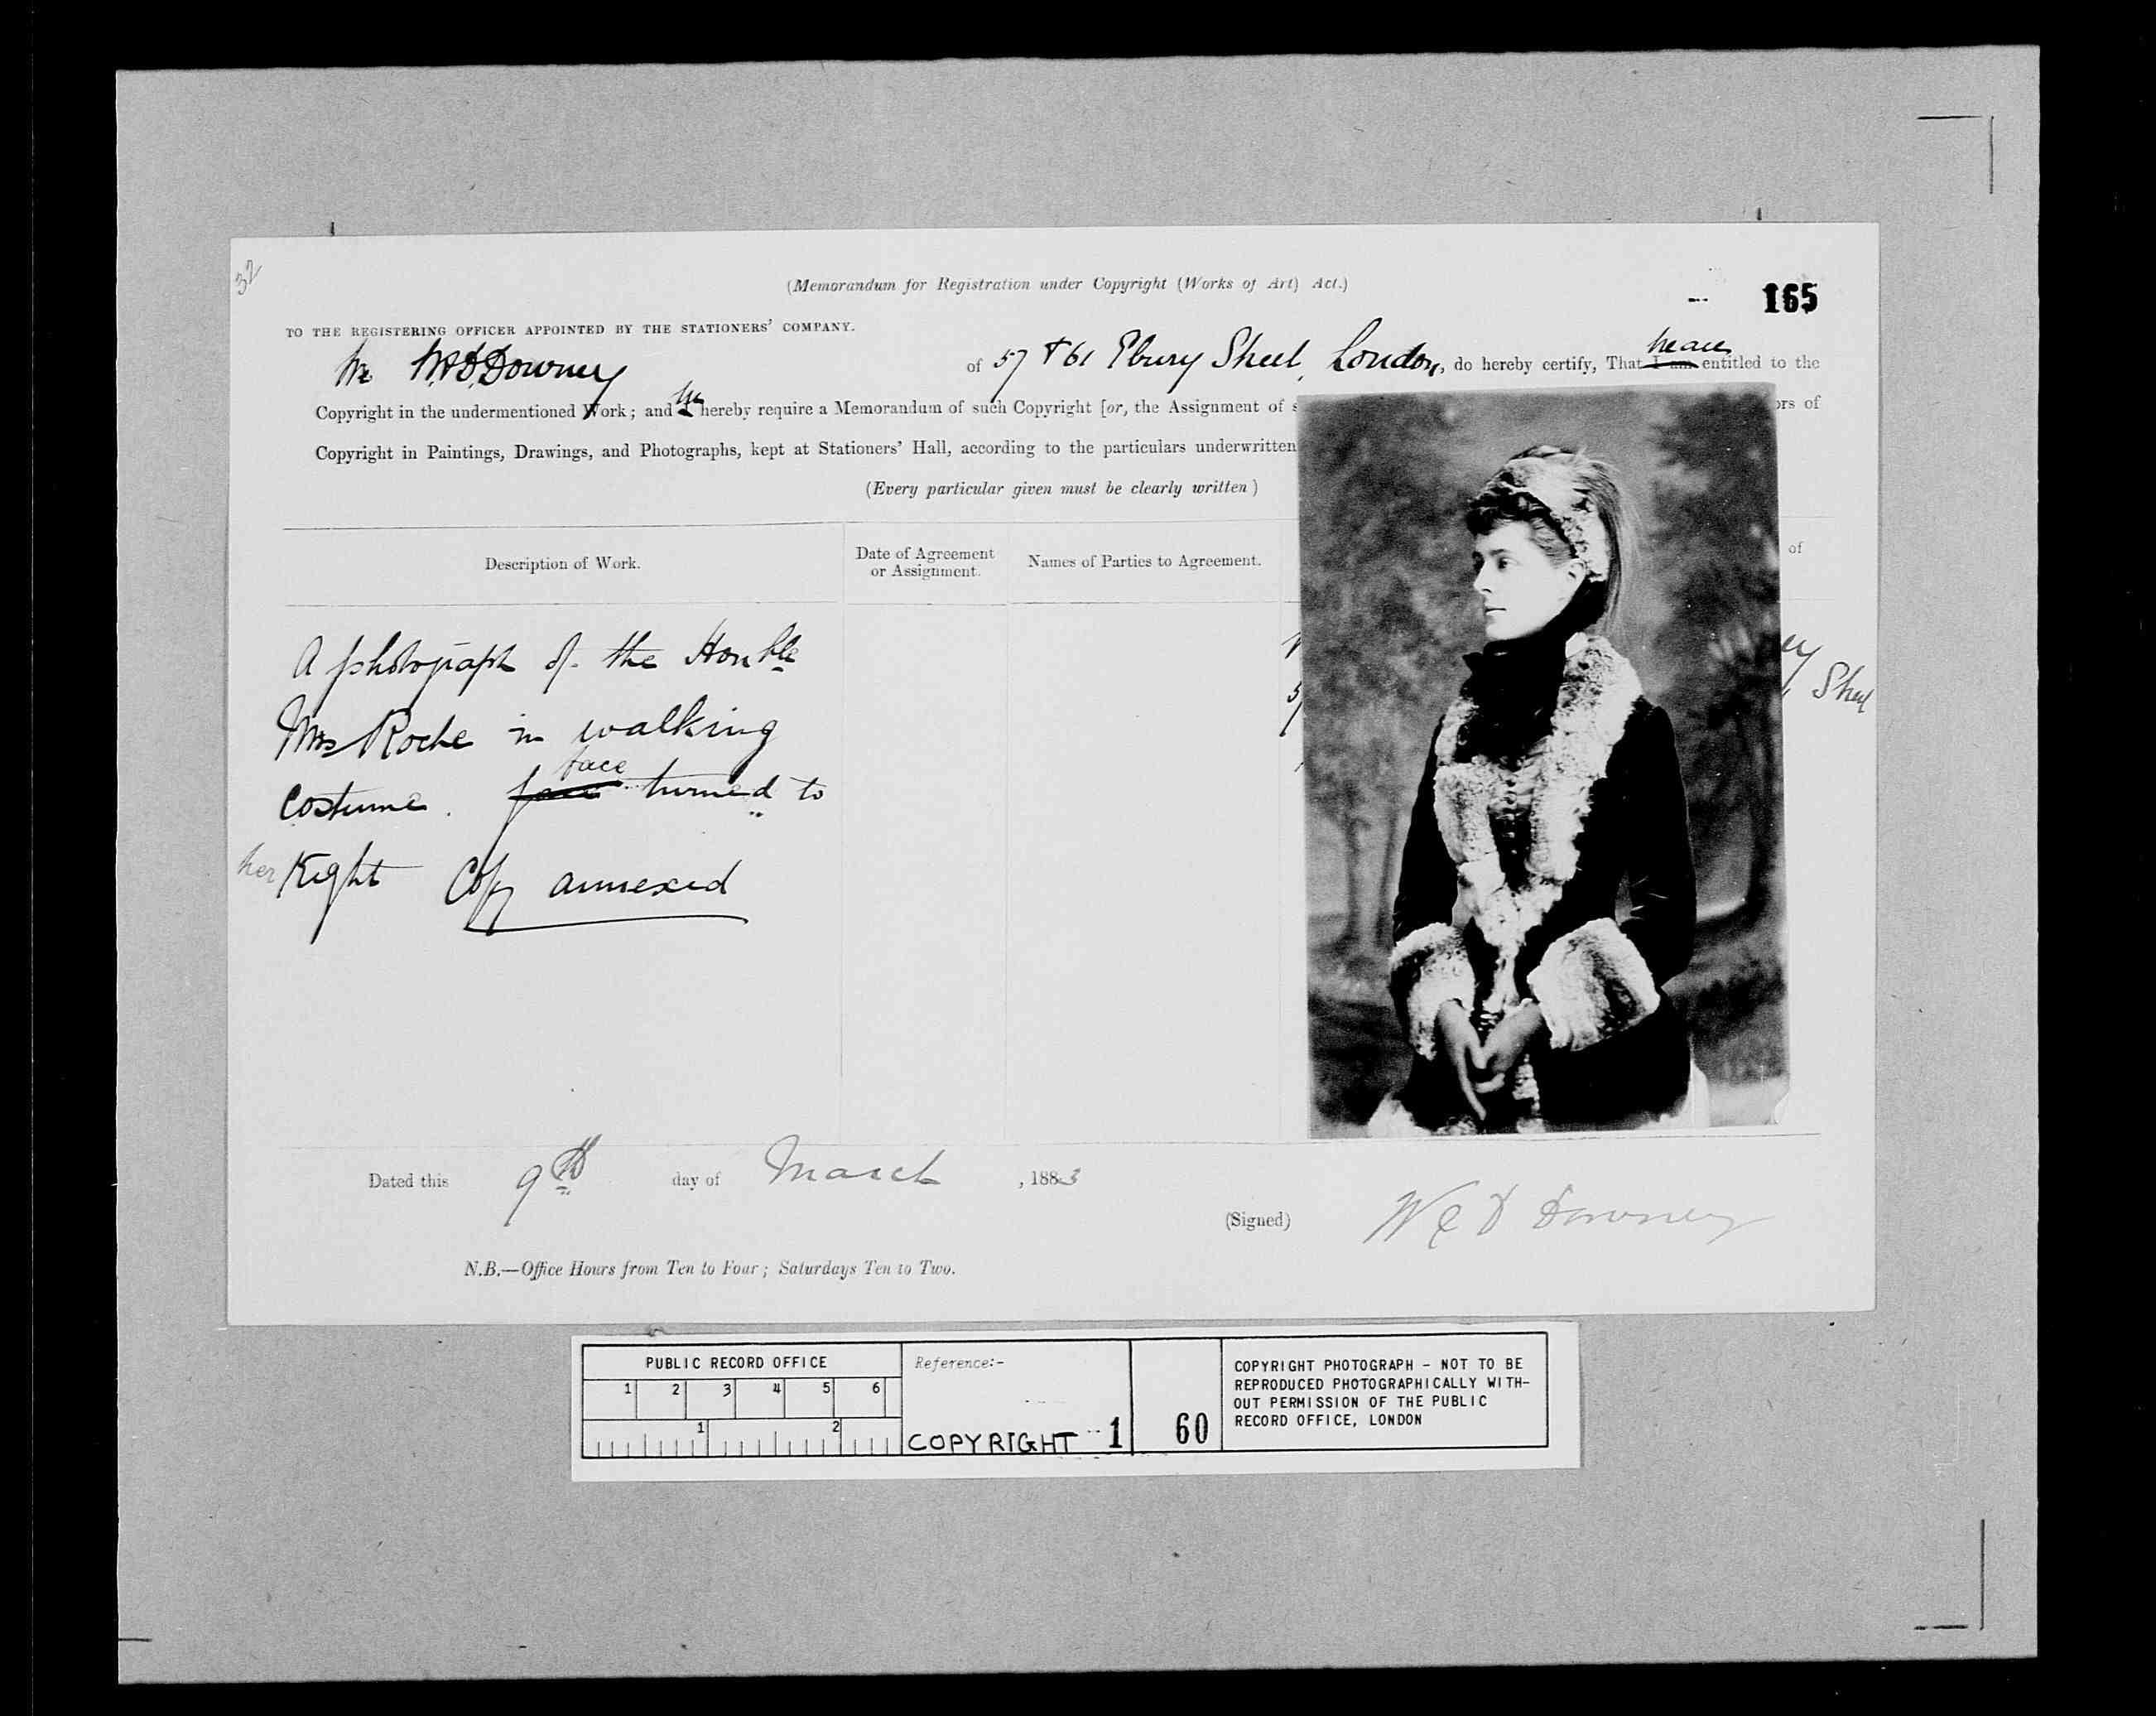 32
(Memorandum for Registration under Copyright (Works of Art) Act.)
165
TO THE REGISTERING OFFICER APPOINTED BY THE STATIONERS' COMPANY.
We W & D Downey of 57 & 61 Ebury Street, London, do hereby certify, That I am we are entitled to the
Copyright in the undermentioned Work; and I We hereby require a Memorandum of such Copyright [or, the Assignment of s ors of
Copyright in Paintings, Drawings, and Photographs, kept at Stationers' Hall, according to the particulars underwritten
(Every particular given must be clearly written)
Description of Work.
Date of Agreement
or Assignment.
Names of Parties to Agreement.
of
A photograph of the Honble
Mrs Roche in walking
costume. face face turned to
her Right Copy annexed
ey
Street
Dated this 9th day of March, 1883
(Signed) W & D Downey
N.B.—Office Hours from Ten to Four; Saturdays Ten to Two.
PUBLIC RECORD OFFICE
1 2 3 4 5 6
1 2
Reference:-
COPYRIGHT 1 60
COPYRIGHT PHOTOGRAPH - NOT TO BE
REPRODUCED PHOTOGRAPHICALLY WITH-
OUT PERMISSION OF THE PUBLIC
RECORD OFFICE, LONDON